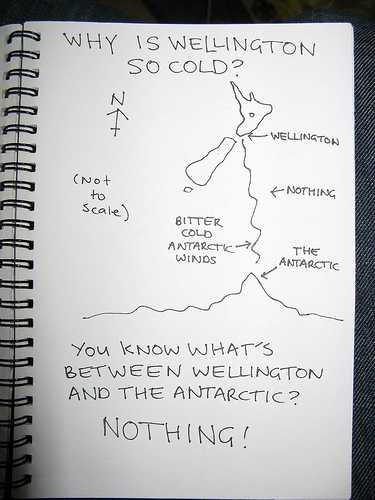 WHY IS WELLINGTON
SO COLD?
N
WELLINGTON
(Not
to
scale)
NOTHING
BITTER
COLD
ANTARCTIC
WINDS
THE
ANTARCTIC
YOU KNOW WHAT'S
BETWEEN WELLINGTON
AND THE ANTARCTIC?
NOTHING!